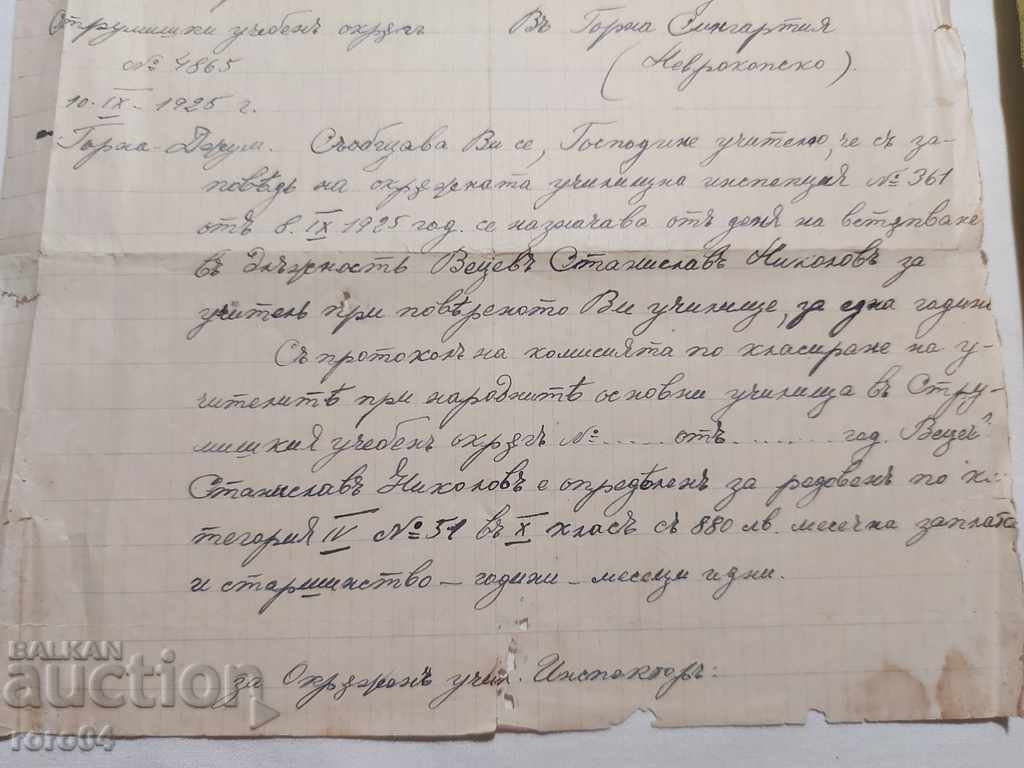 Струмишки учебенъ окрѫгъ Въ Горна Сингартия
№ 4865 (Неврокопско).
10. IX - 1925 г.
Горна-Джум. Съобщава Ви се, Господине учителю, че съ за-
повѣдь на окрѫжната училищна инспекция № 361
отъ 8. IX 1925 год. се назначава отъ деня на встѫпване
въ длъжность Вецевъ Станиславъ Николовъ за
учитель при повѣреното Ви училище, за една година
Съ протоколъ на комисията по класиране на у-
чителитѣ при народнитѣ основни училища въ Стру-
мишкия учебенъ окрѫгъ №...... отъ......... год. Вецевъ
Станиславъ Николовъ е опредѣленъ за редовенъ по ка-
тегория IV № 51 въ X класъ съ 880 лв. месечна заплата
и старшинство – години – месеци и дни.
за Окрѫженъ учил. Инспекторъ:
BALKAN
auction
roro04